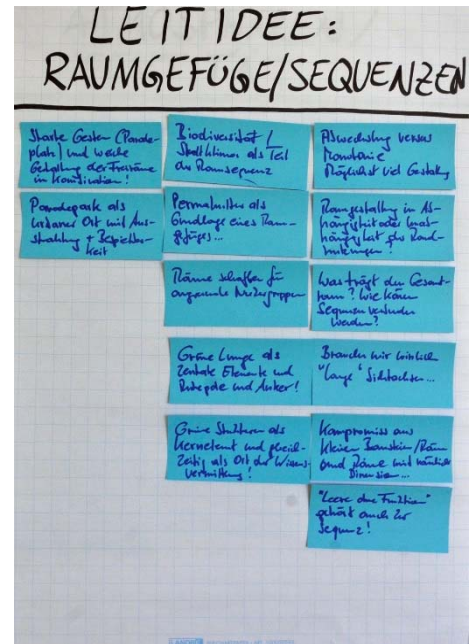 LEITIDEE:
RAUMGEFÜGE/SEQUENZEN
Starke Gesten (Parade-
platz) und weiche
Gestaltung der Freiräume
in Kombination!
Paradepark als
urbaner Ort mit Aus-
strahlung + Bespielbar-
keit
Biodiversität /
Stadtklima als Teil
der Raumsequenz
Permakultur als
Grundlage eines Raum-
gefüges...
Räume schaffen für
Nutzergruppen
Grüne Lunge als
zentrale Elemente und
und Anker!
Grüne Strukturen als
Kernelement und gleich-
zeitig als Ort der Wissens-
vermittlung!
Abwechslung versus
Monotonie
Möglichst viel Gestaltung
Raumgestaltung in Ab-
hängigkeit oder Unab-
hängigkeit der Rand-
nutzungen!
Was trägt den Gesamt-
raum? Wie können
Sequenzen verbunden
werden?
Brauchen wir wirklich
"lange" Sichtachsen...
Kompromiss aus
kleinen Baustein/Räum
und Räume mit
Dimension...
"Leere ohne Funktion"
gehört auch zur
Sequenz!